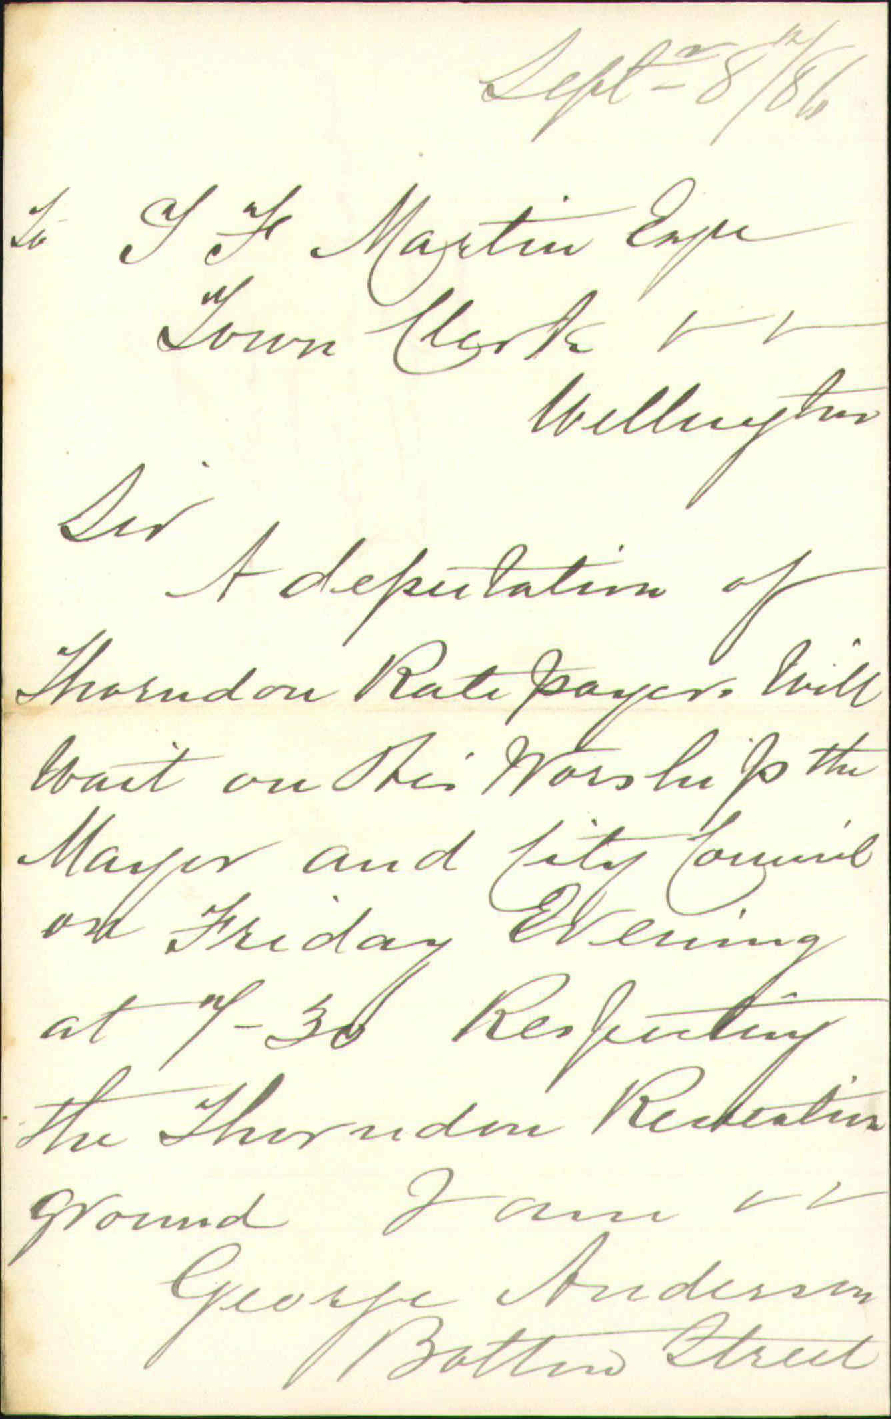 Septr 8th/86
To J F Martin Esqr
Town Clerk
Wellington
Sir
A deputation of
Thorndon Rate payers Will
Wait on His Worship the
Mayor and City Council
on Friday Evening
at 7-30 Respecting
the Thorndon Recreation
ground I am
George Anderson
Street